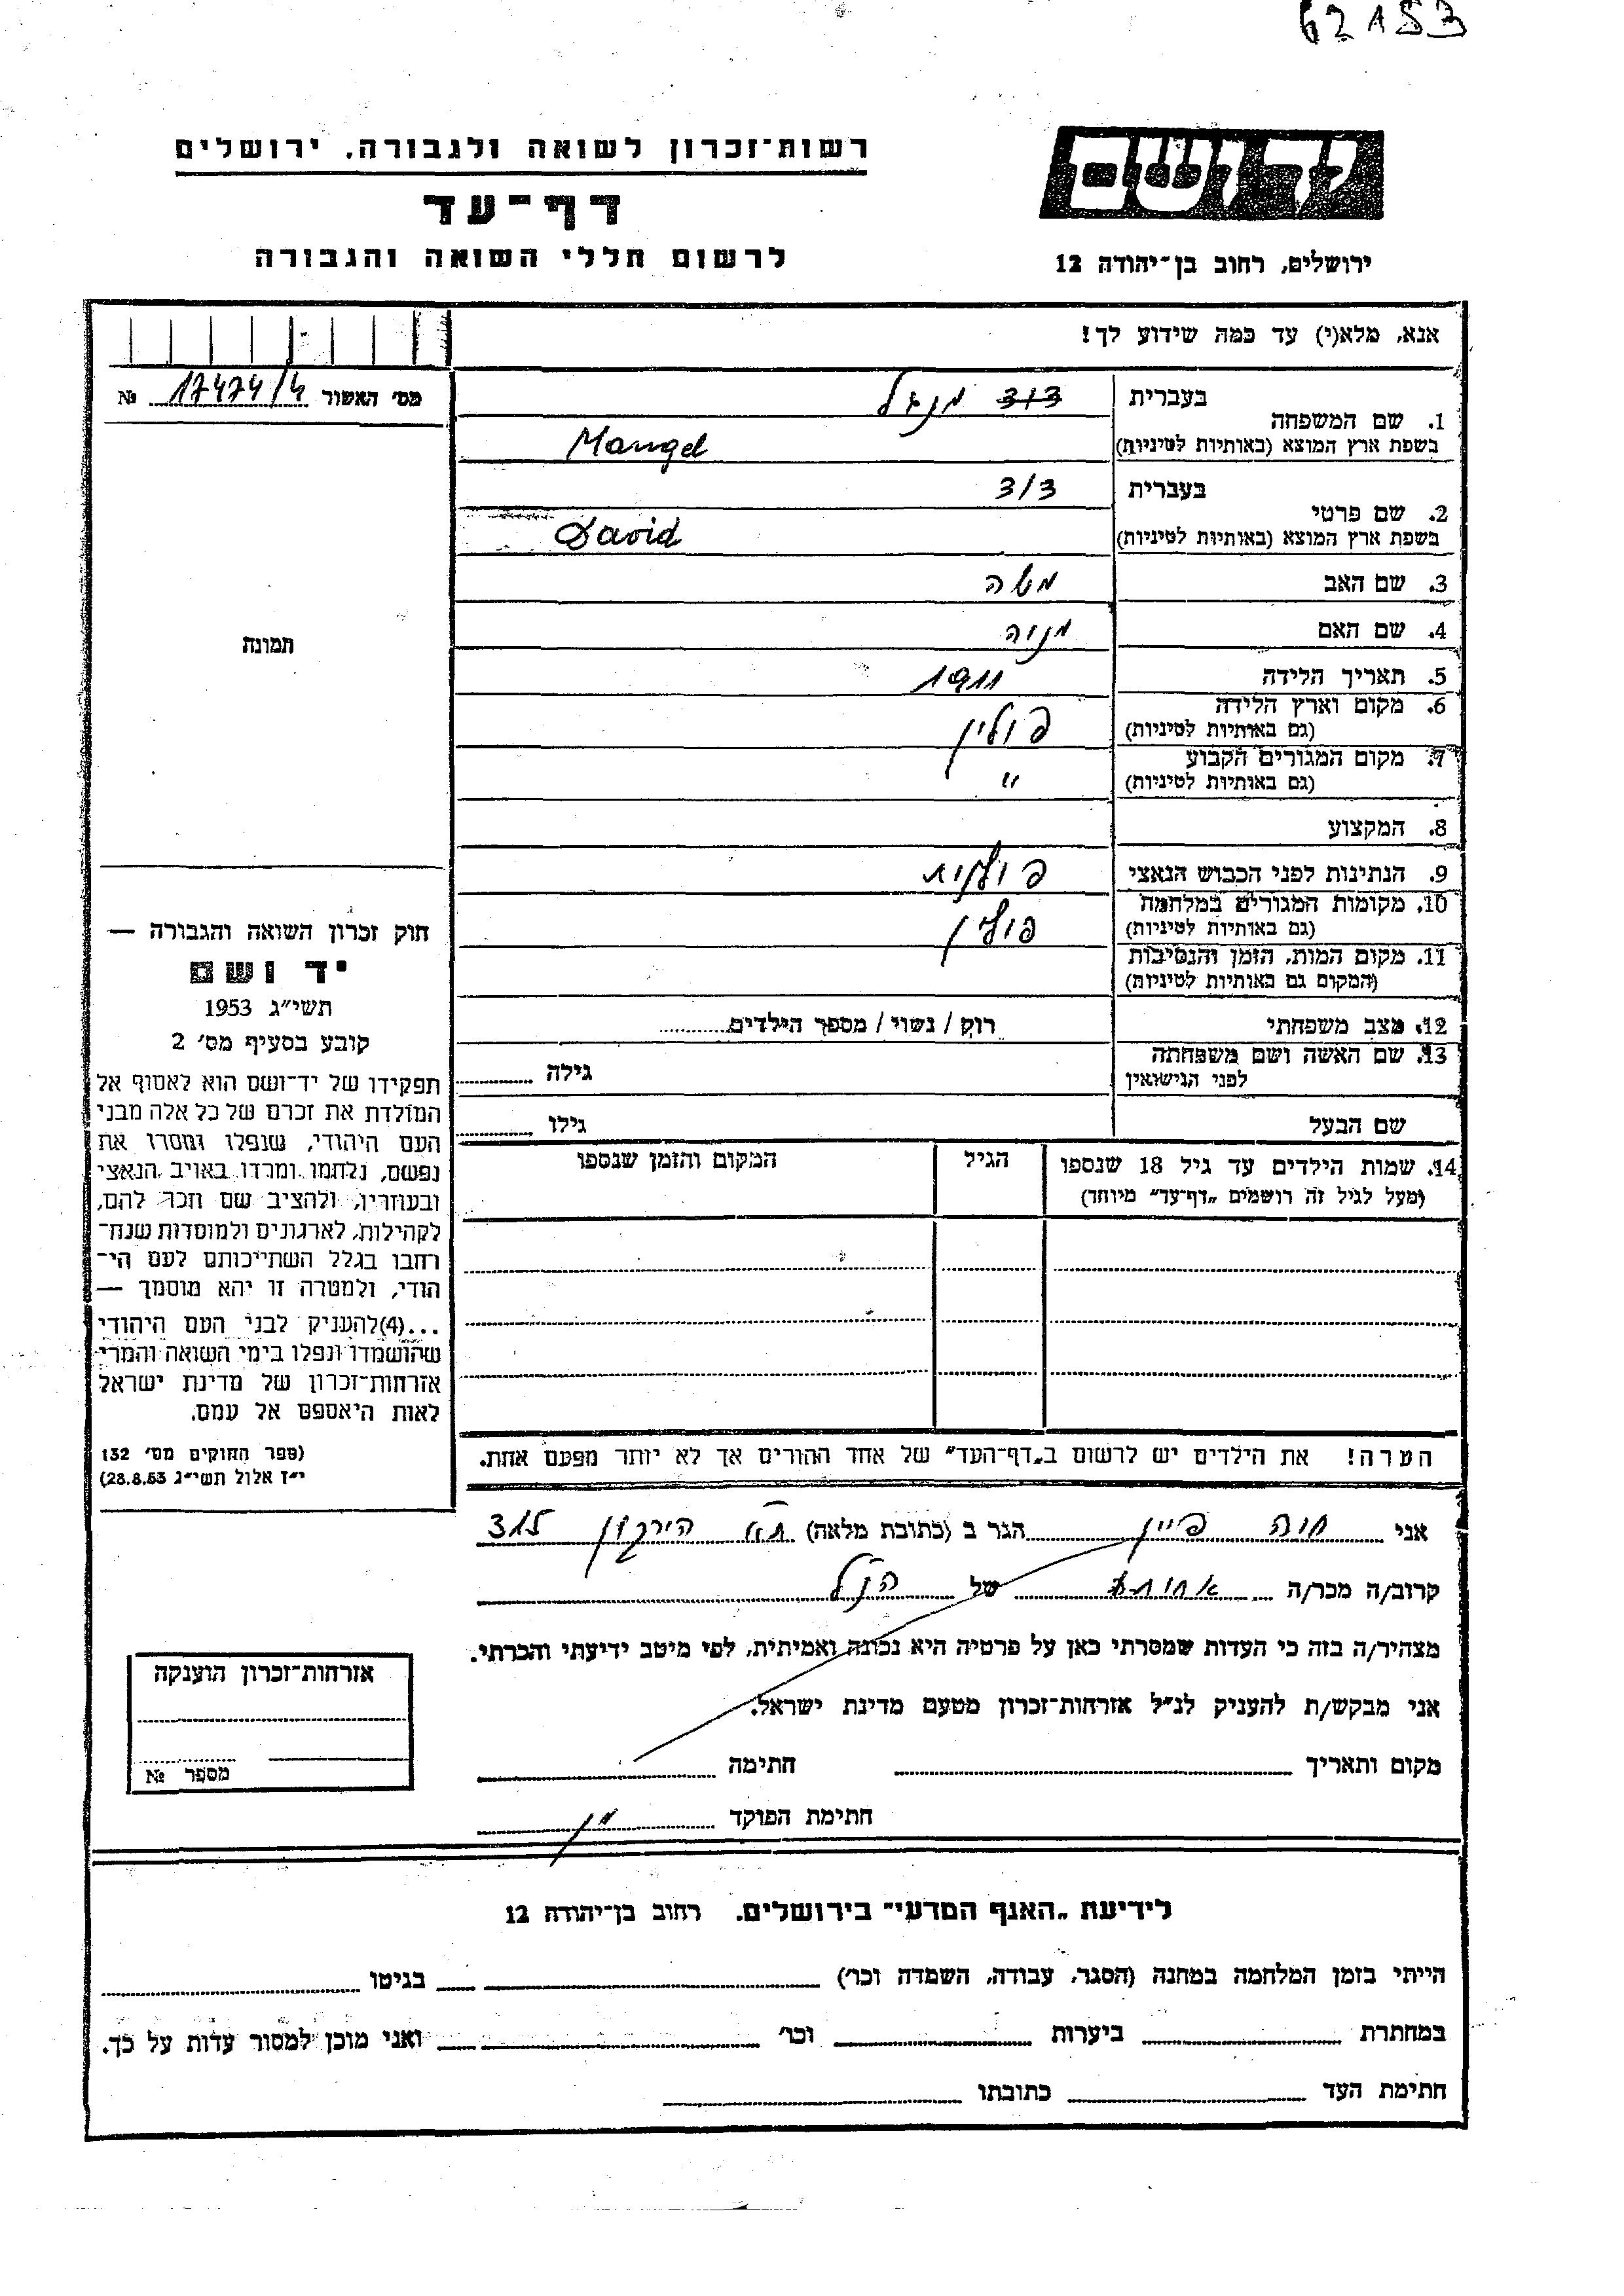 62153
רשות־זכרון לשואה ולגבורה, ירושלים
דף־עד
לרשום חללי השואה והגבורה
יד ושם
ירושלים, רחוב בן־יהודה 12
אנא, מלא(י) עד כמה שידוע לך!
מס׳ האשור 17474/4 №
תמונה
חוק זכרון השואה והגבורה —
יד ושם
תשי״ג 1953
קובע בסעיף מס׳ 2
תפקידו של יד־ושם הוא לאסוף אל
המולדת את זכרם של כל אלה מבני
העם היהודי, שנפלו ומסרו את
נפשם, נלחמו ומרדו באויב הנאצי
ובעוזריו, ולהציב שם וזכר להם,
לקהילות, לארגונים ולמוסדות שנח־
רחבו בגלל השתייכותם לעם הי־
הודי, ולמטרה זו יהא מוסמך —
...(4)להעניק לבני העם היהודי
שהושמדו ונפלו בימי השואה והמרי
אזרחות־זכרון של מדינת ישראל
לאות היאספם אל עמם.
(ספר החוקים מס׳ 132
י״ז אלול תשי״ג 28.8.53)
1. שם המשפחה
בעברית דוד מנגל
בשפת ארץ המוצא (באותיות לטיניות) Mangel
2. שם פרטי
בעברית דוד
בשפת ארץ המוצא (באותיות לטיניות) David
3. שם האב משה
4. שם האם מניה
5. תאריך הלידה 1911
6. מקום וארץ הלידה פולין
(גם באותיות לטיניות)
7. מקום המגורים הקבוע
(גם באותיות לטיניות) "
8. המקצוע
9. הנתינות לפני הכבוש הנאצי פולנית
10. מקומות המגורים במלחמה פולין
(גם באותיות לטיניות)
11. מקום המות, הזמן והנסיבות
(המקום גם באותיות לטיניות)
12. מצב משפחתי רוק / נשוי / מספר הילדים
13. שם האשה ושם משפחתה
לפני הנישואין גילה
שם הבעל גילו
14. שמות הילדים עד גיל 18 שנספו הגיל המקום והזמן שנספו
(מעל לגיל זה רושמים „דף־עד״ מיוחד)
הערה! את הילדים יש לרשום ב„דף־העד״ של אחד ההורים אך לא יותר מפעם אחת.
אני חוה פיין הגר ב (כתובת מלאה) ת״א הירקון 315
קרוב/ה מכר/ה אחותה של הנ״ל
מצהיר/ה בזה כי העדות שמסרתי כאן על פרטיה היא נכונה ואמיתית, לפי מיטב ידיעתי והכרתי.
אני מבקש/ת להעניק לנ״ל אזרחות־זכרון מטעם מדינת ישראל.
מקום ותאריך חתימה
חתימת הפוקד
אזרחות־זכרון הוענקה
מספר №
לידיעת „האגף המדעי״ בירושלים. רחוב בן־יהודה 12
הייתי בזמן המלחמה במחנה (הסגר, עבודה, השמדה וכר׳) בגיטו
במחתרת ביערות וכר׳ ואני מוכן למסור עדות על כך.
חתימת העד כתובתו